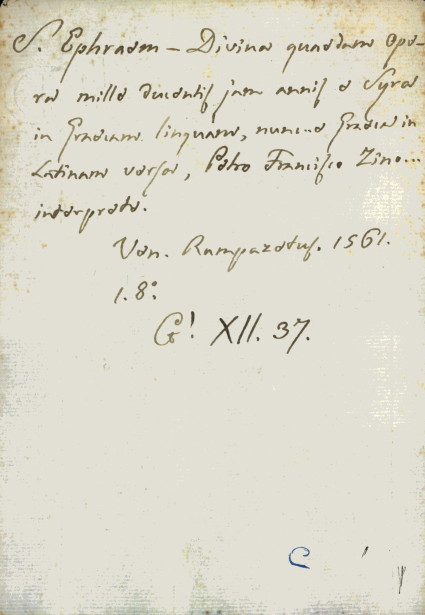 S. Ephraem – Divina quaedam ope-
ra mille ducentis jam annis e Syra
in Graecam linguam, nunc e Graeca in
Latinam versa, Petro Francisco Zino...
interprete.
Ven. Rampazetus. 1561.
1. 8°
G! XII. 37.
C